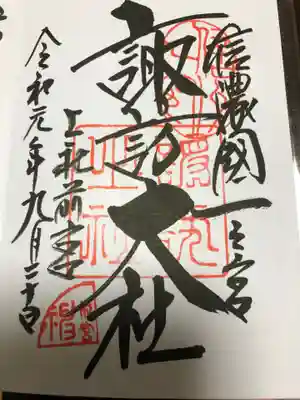 信濃國一之宮
諏訪大社
上社前宮
令和元年九月二十日